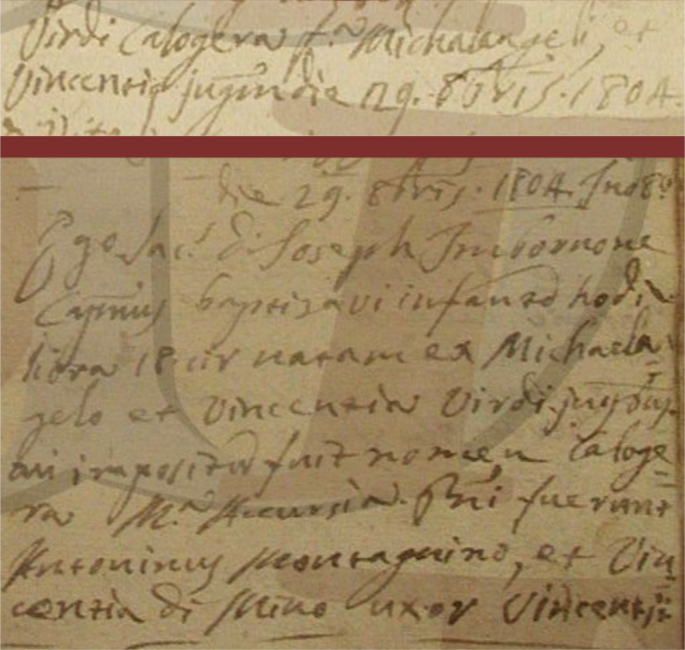 Virdi Calogera f.a Michalangeli, et
Vincentia jug. die 29. 8bris. 1804.
die 29. 8bris. 1804. Ind. 8.
Ego Sac. D. Joseph Imbornone
Cappnus baptizavi infante hodie
hora 18. cir natam ex Michaela
gelo et Vincentia Virdi jug
cui impositu fuit nomen Caloge
ra M.a Accursia. Pni fuerunt
Antoninus Montagnino, et Vin
centia di Mino uxor Vincentii